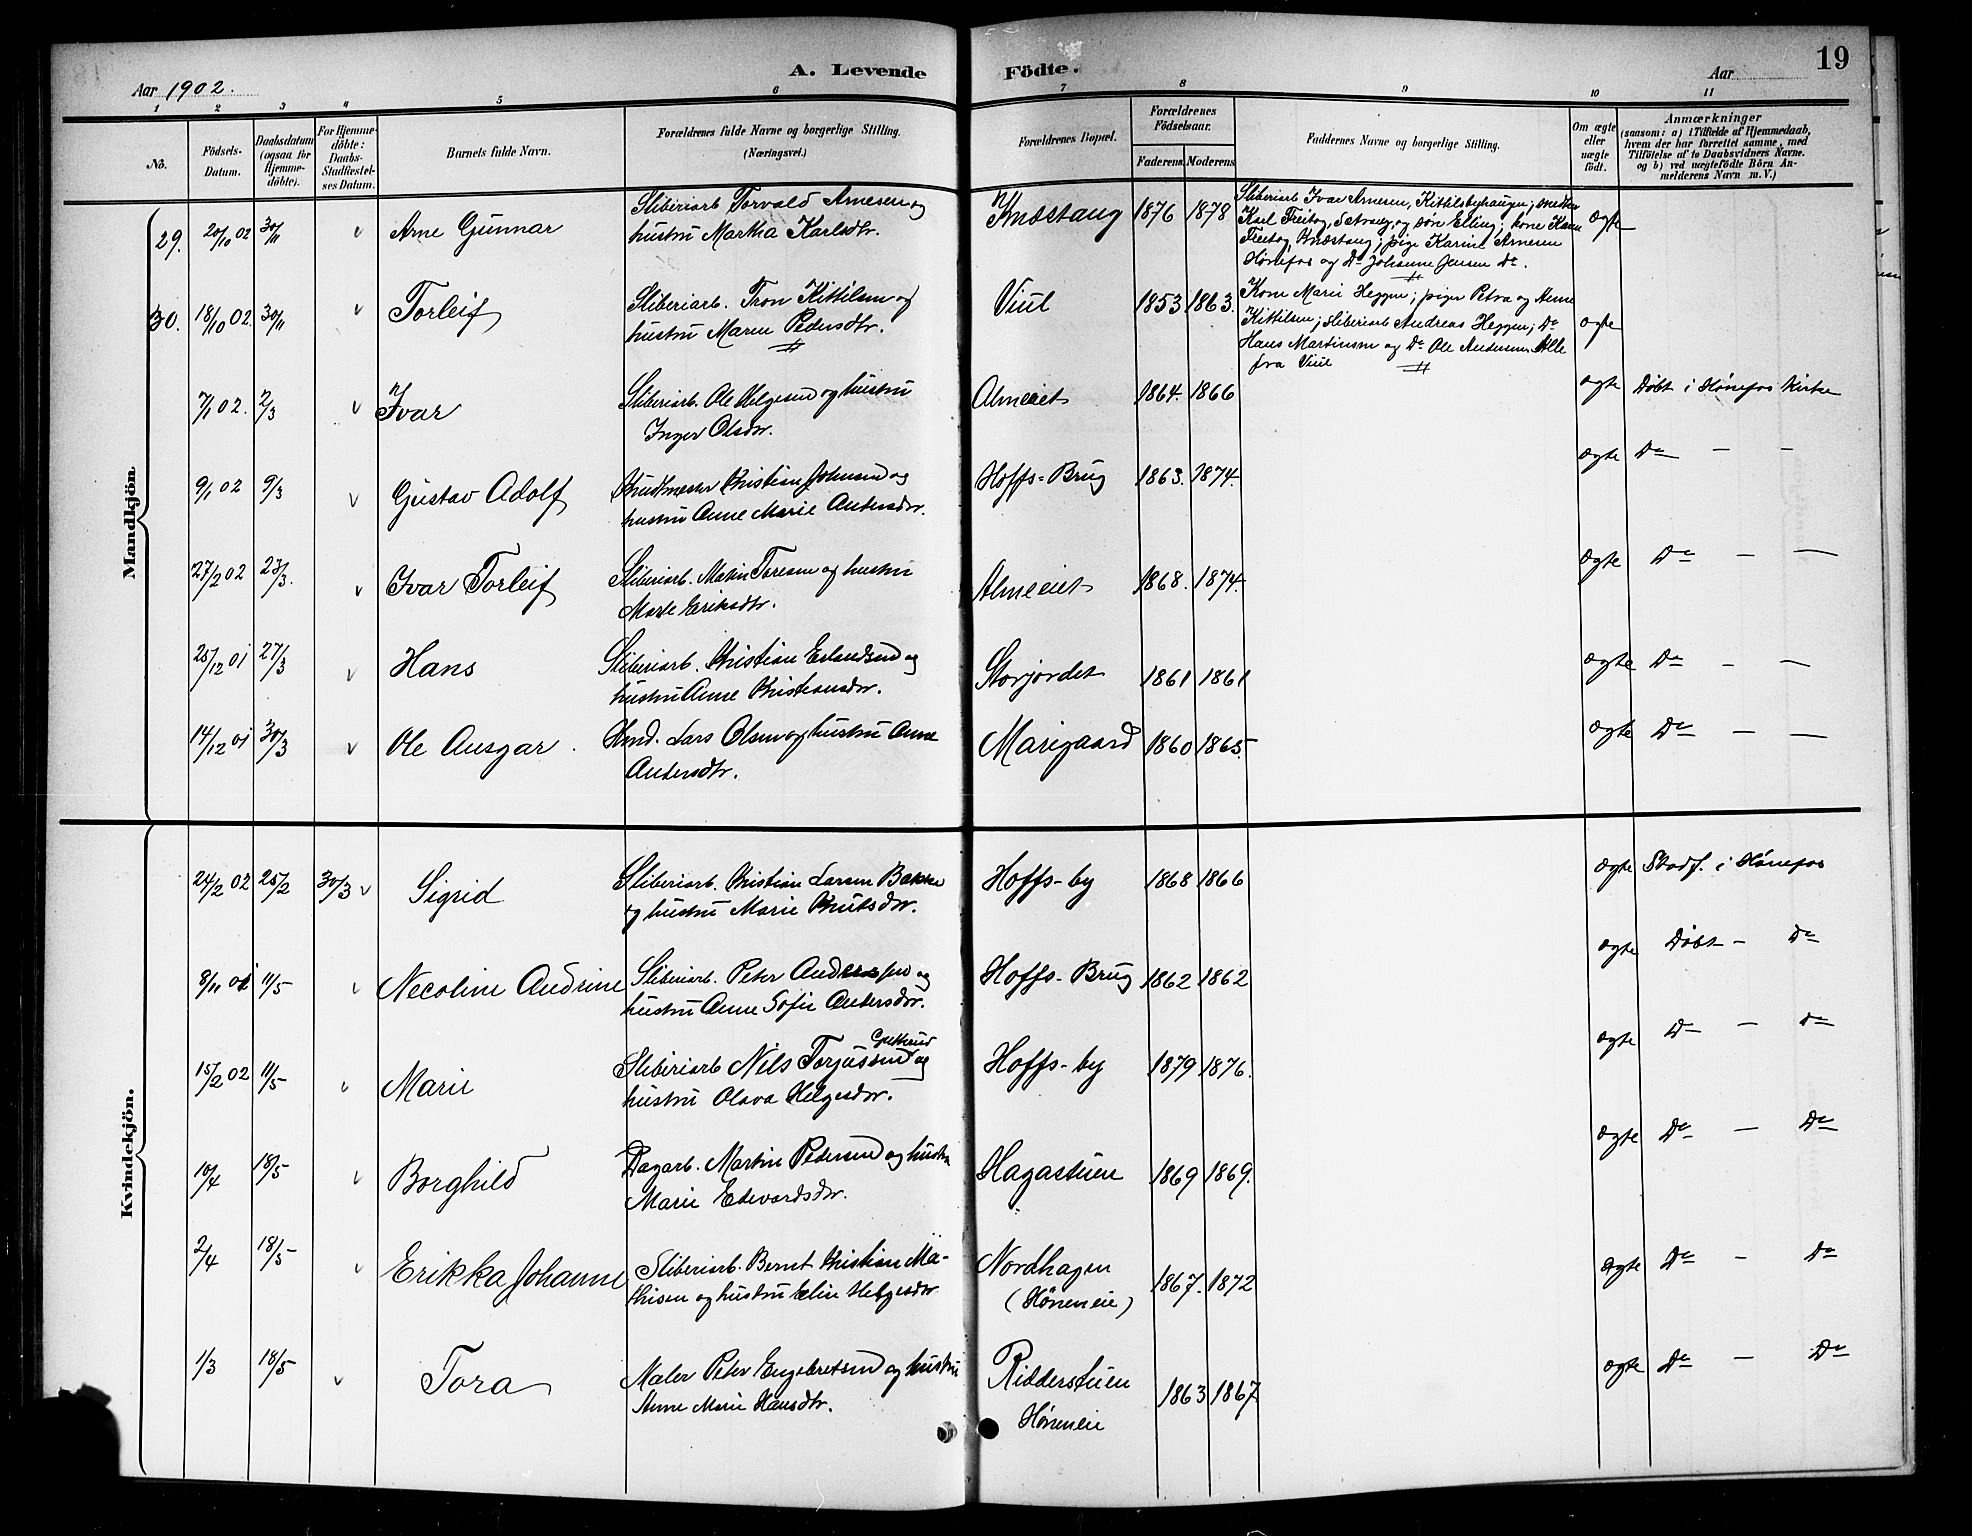 A. Levende Födte.
19
Aar 1902.
Aar
1 2 3 4 5 6 7 8 9 10 11
Nô.
Födsels-
Datum.
Daabsdatum
(ogsaa for
Hjemme-
döbte).
For Hjemme-
döbte:
Daabs-
Stadfæstel-
ses Datum.
Barnets fulde Navn.
Forældrenes fulde Navne og borgerlige Stilling.
(Næringsvei.)
Forældrenes Bopæl.
Forældrenes
Födselsaar.
Faderens. Moderens.
Faddernes Navne og borgerlige Stilling.
Om ægte
eller
uægte
födt.
Anmærkninger
(saasom: a) i Tilfælde af Hjemmedaab,
hvem der har forrettet samme, med
Tilföielse af to Daabsvidners Navne.
og b) ved uægtefödte Börn An-
melderens Navn m. V.)
Mandkjön.
29. 20/10 02 30/11 Arne Gunnar
Sliberiarb Torvald Arnesen og
hustru Martha Karlsdtr.
Knæstang 1876 1878
Sliberiarb Ivar Arnesen, Kittilsbyhaugen; smeden
Karl Freitag, Setrang, og søn Elling; kone Karen
Freitag, Knæstang; pige Karine Arnesen
Hønefos og Do Johanne Jensen do.
ægte
30. 18/10 02. 30/11 Torleif
Sliberiarb. Tron Kittilsen og
hustru Maren Pedersdtr.
Viul 1853 1863.
Kone Marie Heggen; piger Petra og Anne
Kittilsen; sliberiarb Andreas Heggen; Do
Hans Martinsen og Do Ole Andersen Alle
fra Viul
ægte
7/1 02. 2/3 Ivar
Sliberiarb. Ole Helgesen og hustru
Inger Olsdtr.
Almeiet 1864. 1866 ægte Døbt i Hønefos Kirke
9/1 02 9/3 Gustav Adolf
Christian Johnsen og
hustru Anne Marie Andersdtr.
Hoffs-Brug 1863. 1874. ægte Do — —
27/2 02 23/3. Ivar Torleif
Sliberiarb. Martin Toresen og hustru
Marte Eriksdtr.
Almeiet 1868. 1874. ægte Do — —
25/12 01 27/3 Hans
Sliberiarb. Christian Erlandsen og
hustru Anne Christiansdtr.
Storjordet 1861 1861 ægte Do — —
14/12 01 30/3 Ole Ansgar.
Lars Olsen og hustru Anne
Andersdtr.
Marigaard 1860 1865. ægte Do — —
Kvindekjön.
24/2 02 25/2 30/3 Sigrid
Sliberiarb. Christian Larsen Bakke
og hustru Marie Knutsdtr.
Hoffs-by 1868 1866 ægte Stadf. i Hønefos
8/11 01 11/5 Necoline Andrine
Sliberiarb. Peter Anderssen og
hustru Anne Sofie Andersdtr.
Hoffs-Brug 1862 1862 ægte Døbt — Do
15/2 02 11/5 Marie
Sliberiarb Nils Torjussen og
hustru Olava Helgesdtr.
Hoffs-by 1879 1876. ægte Do — Do
10/4 18/5 Borghild
Dagarb. Martin Pedersen og hustru
Marie Edvardsdtr.
Hagastuen 1869 1869. ægte Do — Do
2/4 18/5 Erikka Johanne
Sliberiarb. Bernt Christian Ma-
thisen og hustru Elin Helgesdtr
Nordhagen
(Høneneie)
1867. 1872 ægte Do — Do
1/3 18/5 Tora
Maler Peter Engebretsen og hustru
Anne Marie Hansdtr.
Ridderstuen
Høneneie
1863 1867. ægte Do — Do